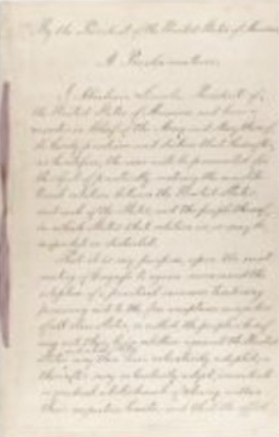 By the President of the United States of America
A Proclamation.
I, Abraham Lincoln, President of
the United States of America, and
of the Army and Navy thereof,
do hereby proclaim and declare that hereafter,
as heretofore, the war will be prosecuted for
the object of practically restoring the
relation between the United States,
and each of the States, and the people thereof,
in which States that relation is, or may be
suspended or disturbed.
That it is my purpose, upon the next
meeting of Congress to again recommend the
adoption of a practical measure tendering
pecuniary aid to the free acceptance or rejection
of all slave States, so called, the people
may not then be in rebellion against the United
States
may then have voluntarily adopted, or
thereafter may voluntarily adopt, immediate
or gradual abolishment of slavery within
their respective limits; and that the effort